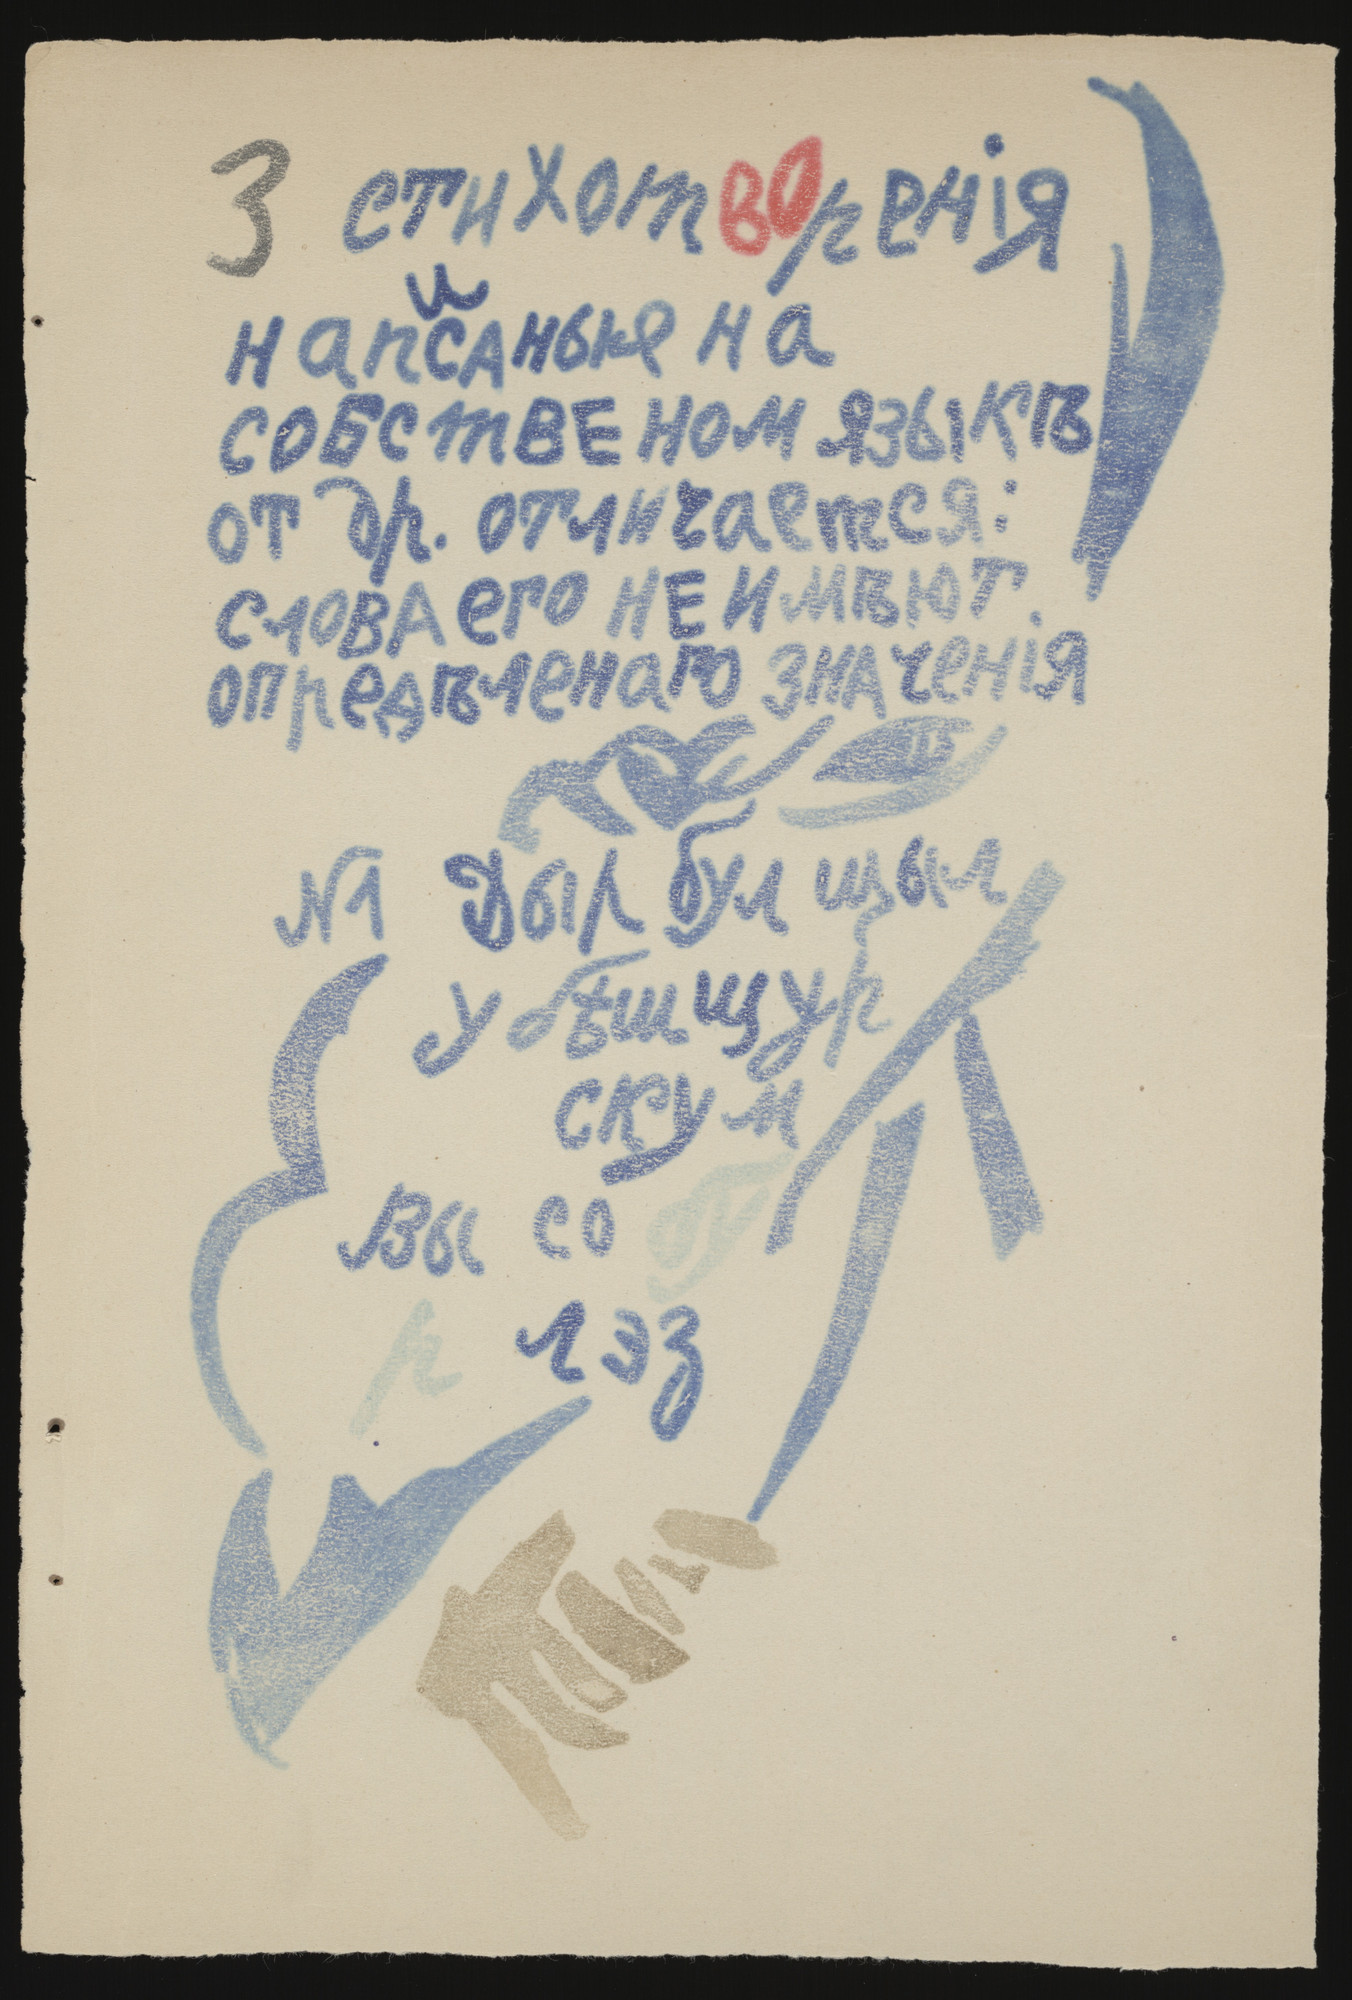 3 стихотворенія
написаныя на
собственом языкѣ
от др. отличается:
слова его не имѣют
опредѣленаго значенія
№1 Дыр бул щыл
убѣшщур
скум
вы со бу
р л эз